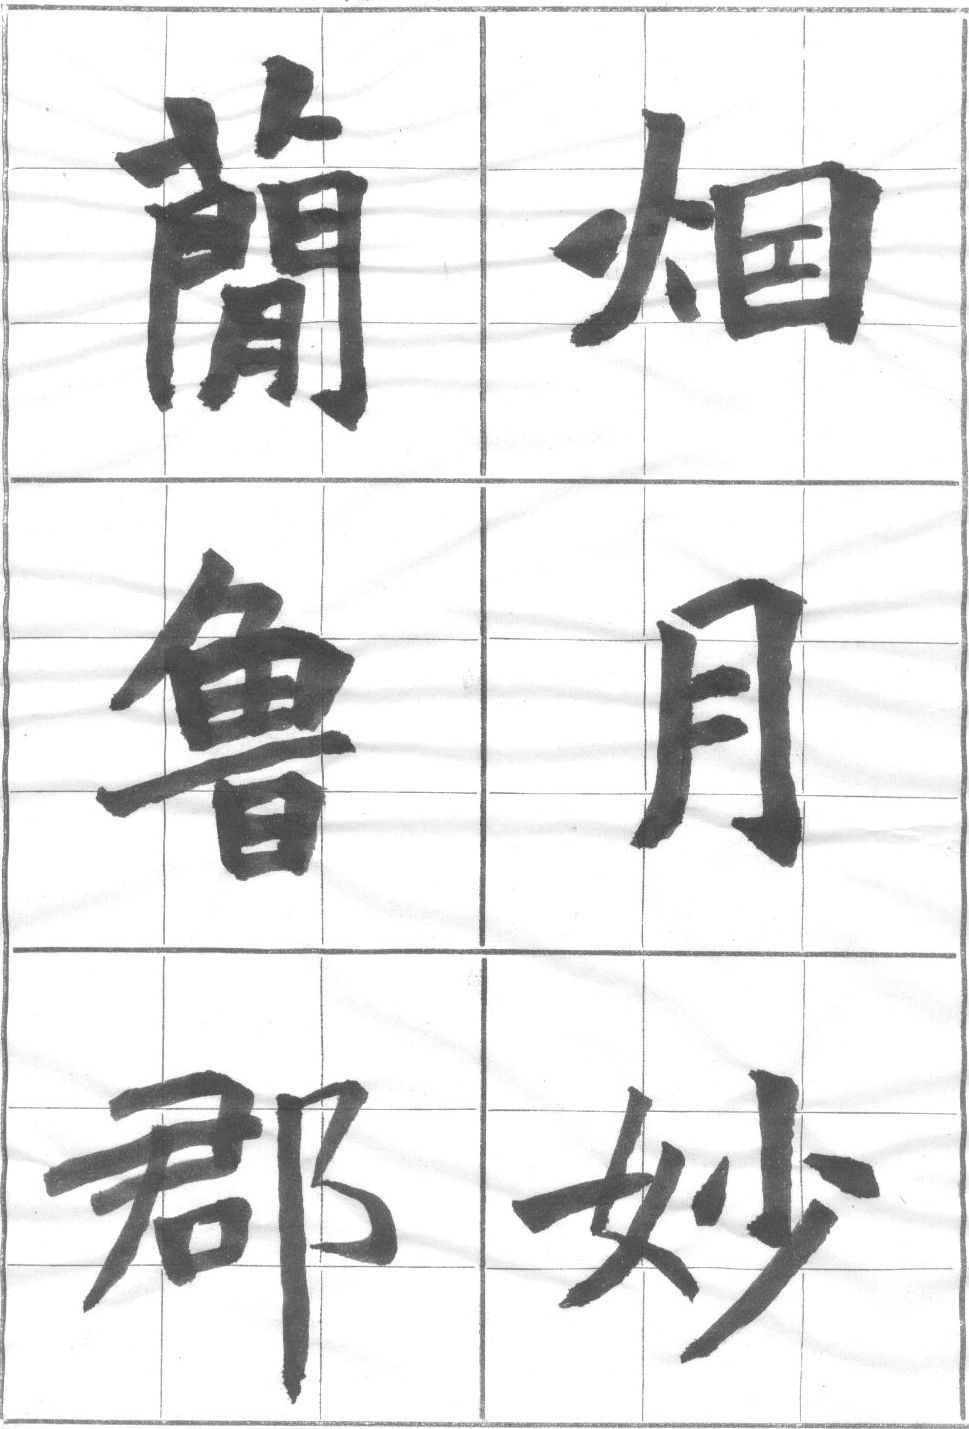 烟月妙
簡鲁郡